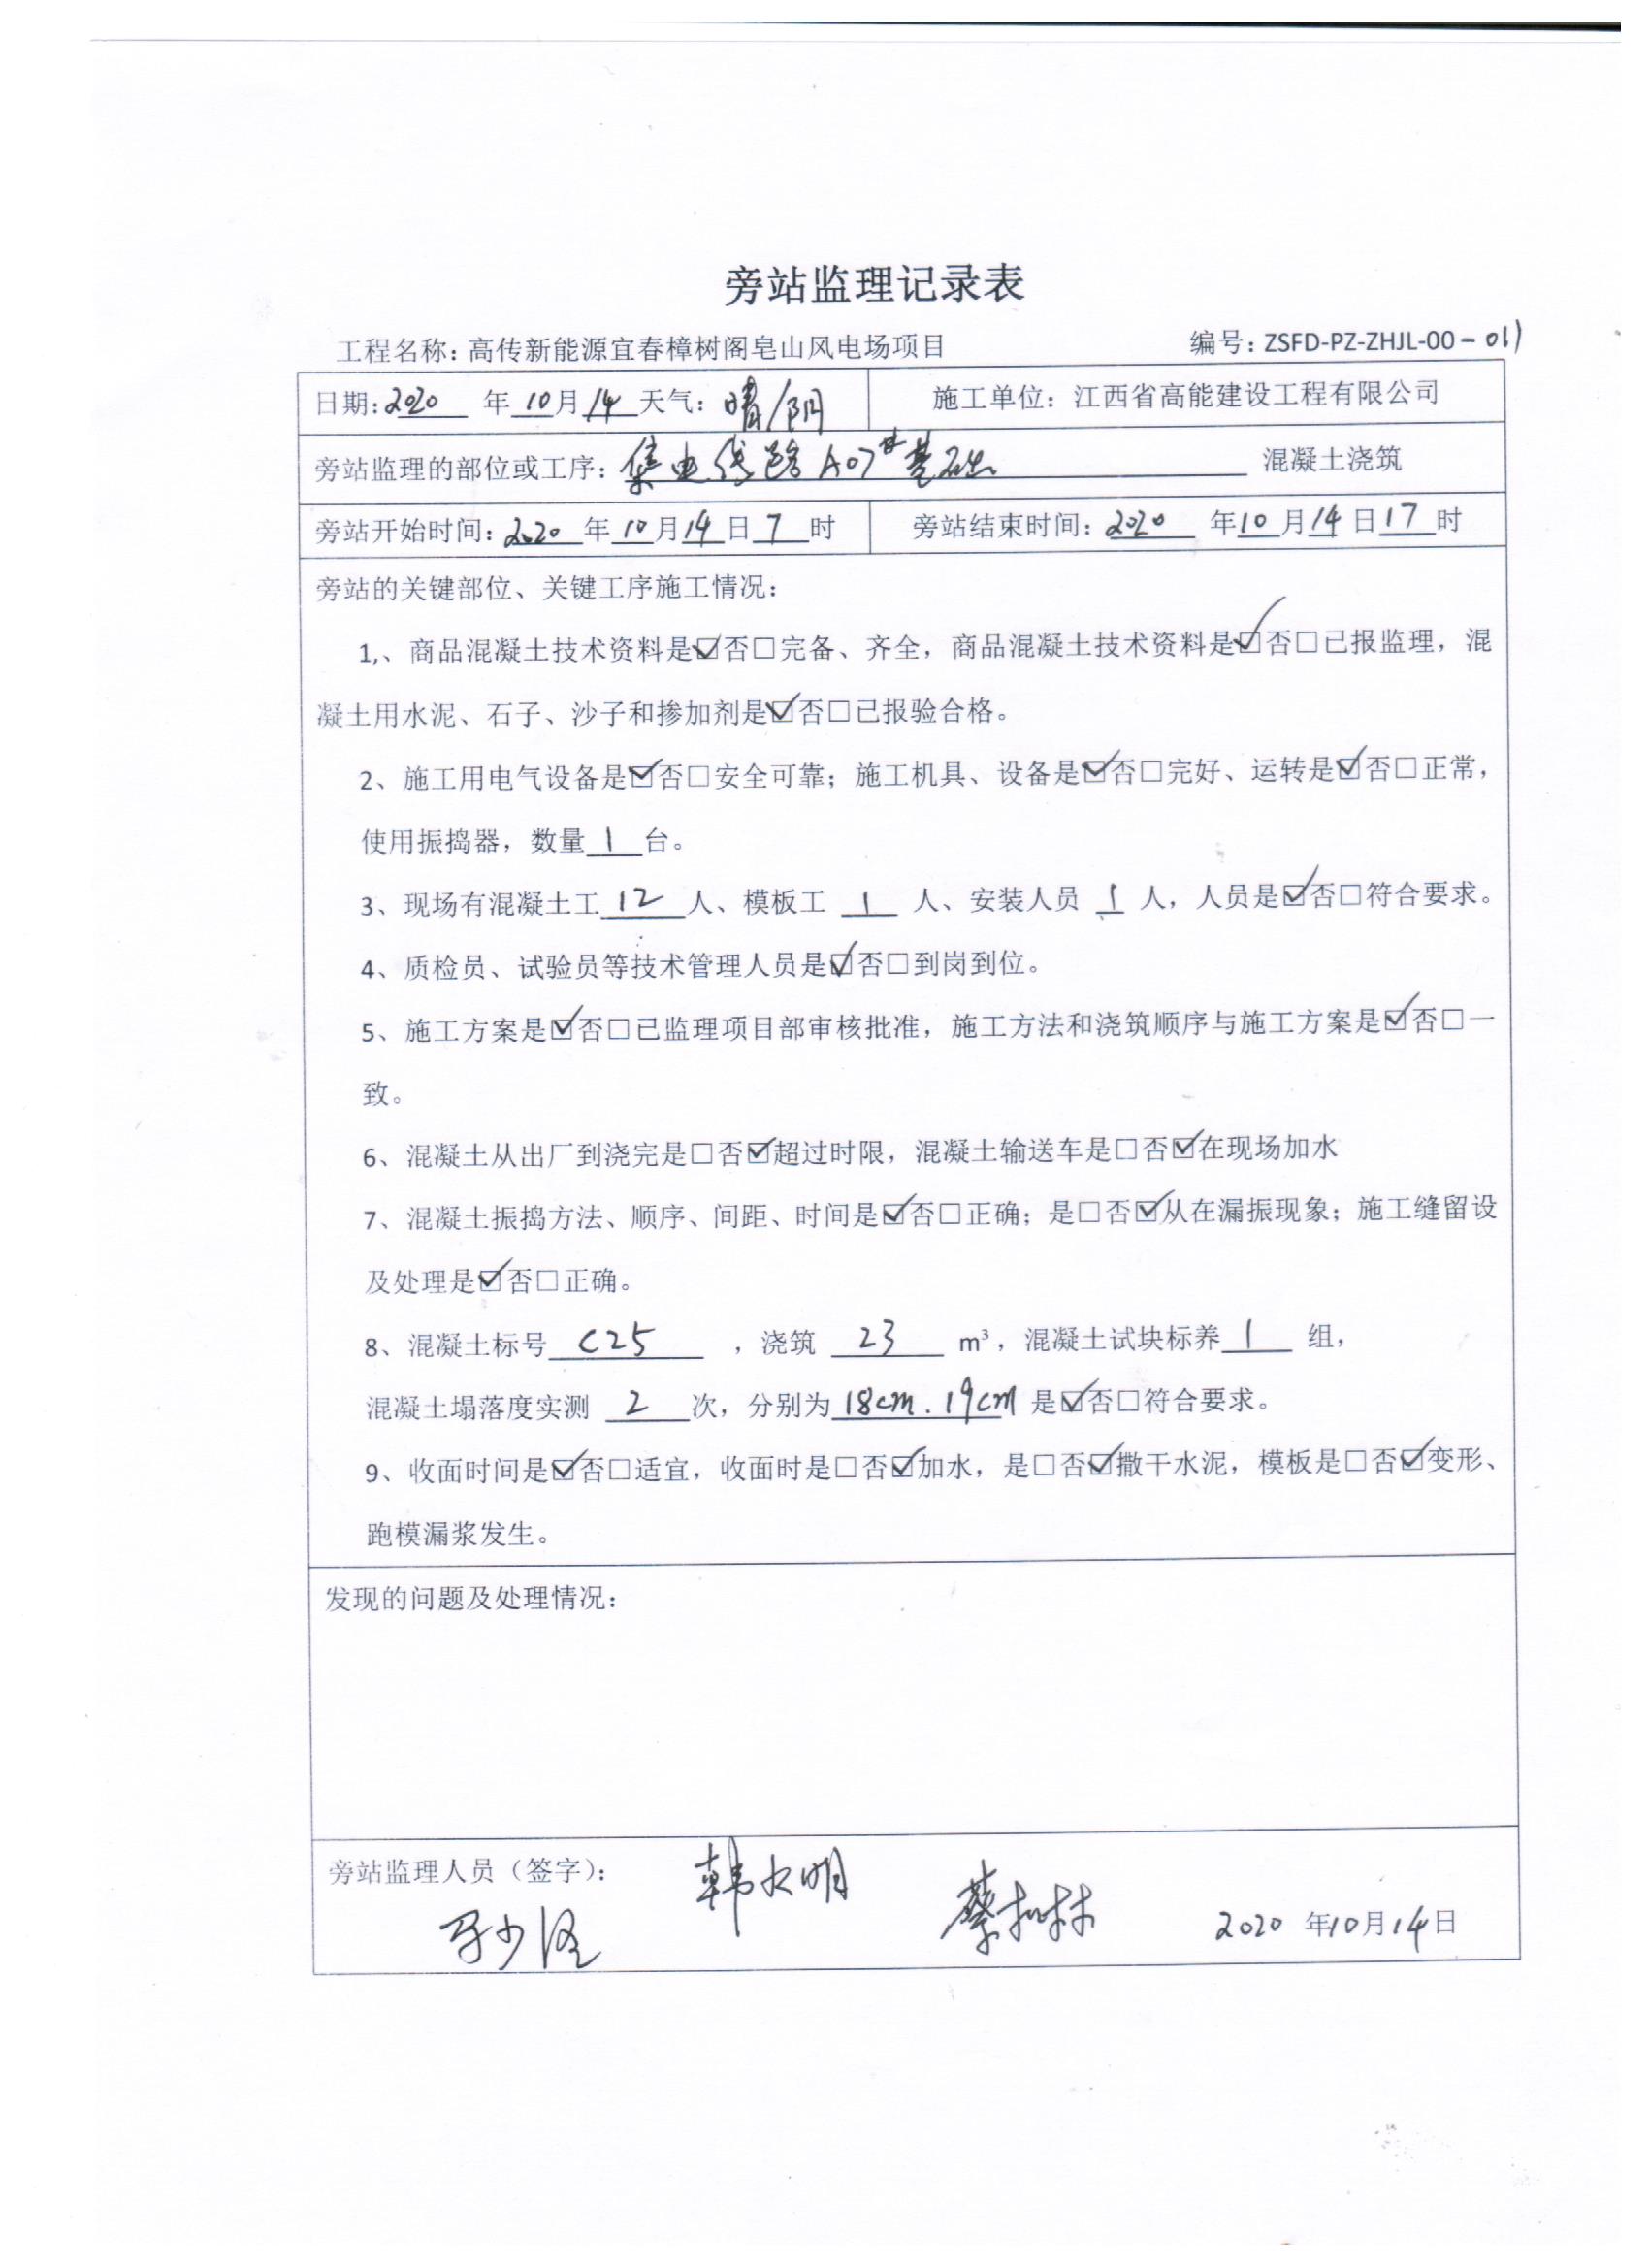 旁站监理记录表
工程名称：高传新能源宜春樟树阁皂山风电场项目 编号：ZSFD-PZ-ZHJL-00-011
日期：2020 年 10 月 14 天气：晴/阴 施工单位：江西省高能建设工程有限公司
旁站监理的部位或工序：集电线路A07#基础 混凝土浇筑
旁站开始时间：2020 年 10 月 14 日 7 时 旁站结束时间：2020 年 10 月 14 日 17 时
旁站的关键部位、关键工序施工情况：
1,、商品混凝土技术资料是☑否□完备、齐全，商品混凝土技术资料是☑否□已报监理，混
凝土用水泥、石子、沙子和掺加剂是☑否□已报验合格。
2、施工用电气设备是☑否□安全可靠；施工机具、设备是☑否□完好、运转是☑否□正常，
使用振捣器，数量 1 台。
3、现场有混凝土工 12 人、模板工 1 人、安装人员 1 人，人员是☑否□符合要求。
4、质检员、试验员等技术管理人员是☑否□到岗到位。
5、施工方案是☑否□已监理项目部审核批准，施工方法和浇筑顺序与施工方案是☑否□一
致。
6、混凝土从出厂到浇完是□否☑超过时限，混凝土输送车是□否☑在现场加水
7、混凝土振捣方法、顺序、间距、时间是☑否□正确；是□否☑从在漏振现象；施工缝留设
及处理是☑否□正确。
8、混凝土标号 C25 ，浇筑 23 m³，混凝土试块标养 1 组，
混凝土塌落度实测 2 次，分别为 18cm.19cm 是☑否□符合要求。
9、收面时间是☑否□适宜，收面时是□否☑加水，是□否☑撒干水泥，模板是□否☑变形、
跑模漏浆发生。
发现的问题及处理情况：
旁站监理人员（签字）：
2020 年10月14日